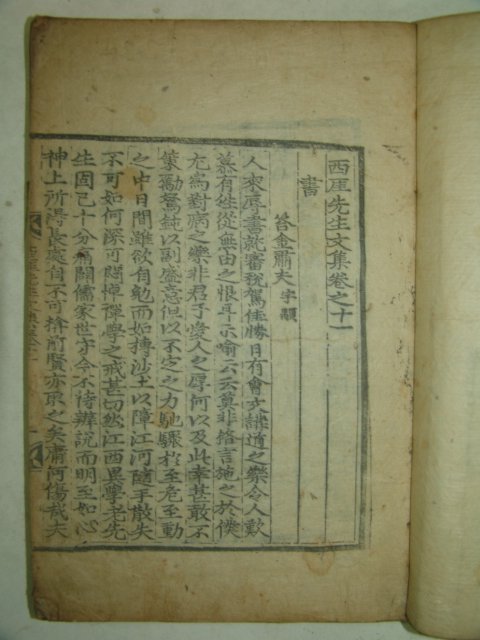 西厓先生文集卷之十一
書
答金肅夫 宇顒
人來辱書就審稅駕佳勝日有會文講道之樂令人歎
慕有姓從無由之恨耳示喻云云莫非格言施之於僕
尤爲對病之藥非君子愛人之厚何以及此幸甚敢不
策勵駑鈍以副盛意但以不定之力馳驟於至危至動
之中日間雖欲自勉而如搏沙土以障江河隨手散失
不可如何深可悶悼禪學之戒甚切然江西異學老先
生固已十分痛闢儒家世守今不待辨說而明至如心
神上所得長處自不可揜前賢亦取之矣庸何傷哉夫